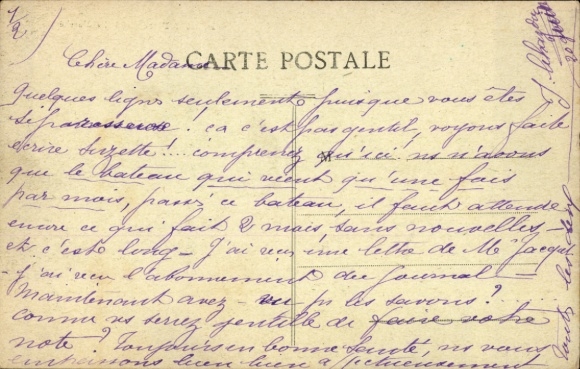 1/2
CARTE POSTALE
Chère Madame
Quelques lignes seulement puisque vous êtes
si paresseuse. ça c'est pas gentil, voyons faite
écrire Suzette!... comprenez qu'ici ns n'avons
que le bateau qui vient qu'une fois
par mois, passé ce bateau, il faut attendre
encore ce qui fait 2 mois, sans nouvelles,
et c'est long - J'ai reçu une lettre de Me Jacqu
- J'ai reçu l'abonnement du journal -
Maintenant avez-vu pu les savons?......
comme vs seriez gentille de faire votre
note? Toujours en bonne santé, ns vous
embrassons bien bien affectueusement